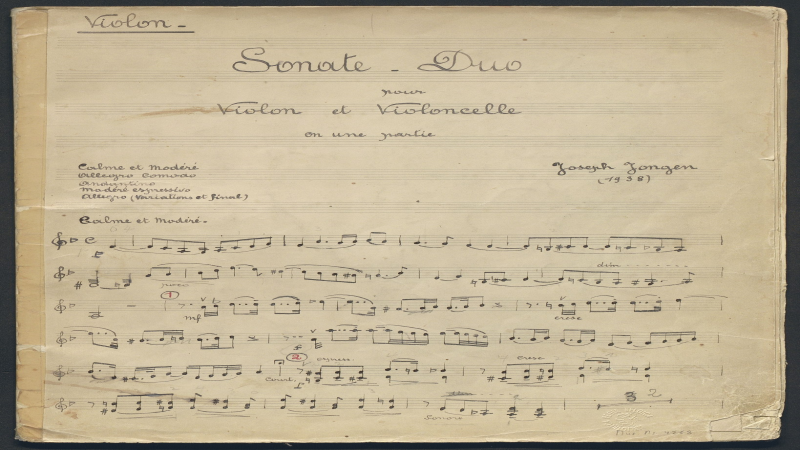 Violon -
Sonate - Duo
pour
Violon et Violoncelle
en une partie
Calme et Modéré
Allegro Comodo
Andantino
Modéré espressivo
Allegro (Variations et final)
Joseph Jongen
(1938)
Calme et Modéré.
dim
poco
1
mf
cresc
2
espress.
cresc
Court.
f
3 2
Sonore